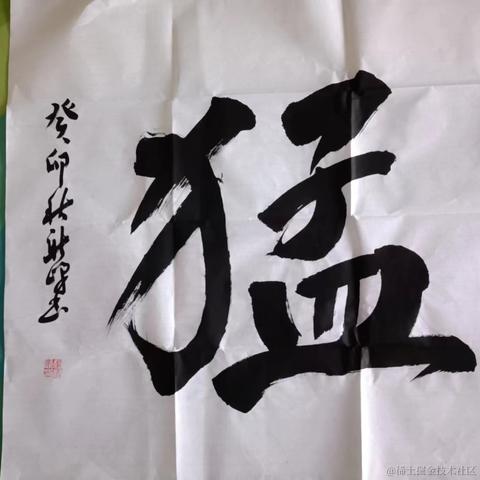 猛
癸卯秋
@稀土掘金技术社区